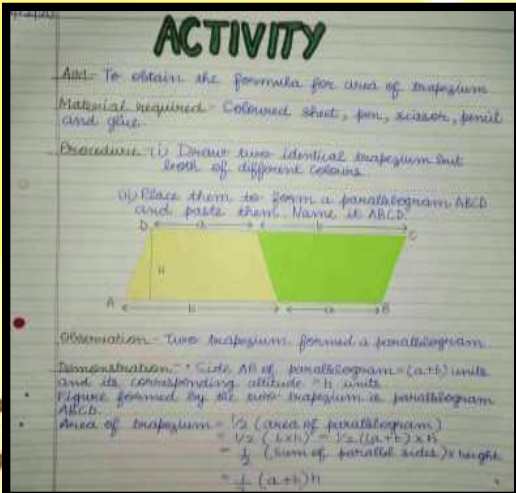 ACTIVITY
Aim - To obtain the formula for area of trapezium
Material required - Coloured sheet, pen, scissor, pencil
and glue.
Procedure (i) Draw two identical trapezium but
both of different colours.
(ii) Place them to form a parallelogram ABCD
and paste them. Name it ABCD.
D a b C
h
A b a B
Observation - Two trapezium formed a parallelogram.
Demonstration - • Side AB of parallelogram = (a+b) units
and its corresponding altitude = h units
Figure formed by the two trapezium is parallelogram
ABCD.
Area of trapezium = 1/2 (area of parallelogram)
= 1/2 (b×h) = 1/2 (a+b) × h
= 1/2 (sum of parallel sides) × height
= 1/2 (a+b)h